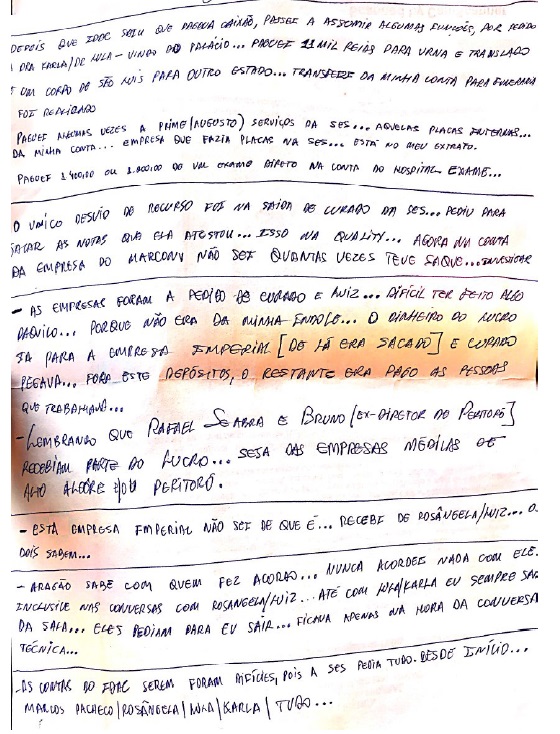 DEPOIS QUE IDAC SAIU QUE PAGAVA CAIXÃO, PASSEI A ASSUMIR ALGUMAS FUNÇÕES, POR PEDIDO
DRA KARLA/DE LULA - VINDO DO PALÁCIO... PAGUEI 11 MIL REIAS PARA URNA E TRANSLADO
UM CORPO DE SÃO LUIS PARA OUTRO ESTADO... TRANSFERI DA MINHA CONTA PARA FUNERARIA
FOI REALIZADO
PAGUEI ALGUMAS VEZES A PRIME (AUGUSTO) SERVIÇOS DA SES... AQUELAS PLACAS INTERNAS...
DA MINHA CONTA... EMPRESA QUE FAZIA PLACAS NA SES... ESTÁ NO MEU EXTRATO.
PAGUEI OU 1.800,00 DE UM EXAME DIRETO NA CONTA DO HOSPITAL EXAME...
O UNICO DESVIO DE RECURSO FOI NA SAIDA DE CURADO DA SES... PEDIU PARA
AS NOTAS QUE ELA ATESTOU... ISSO NA QUALITY... AGORA NA CONTA
DA EMPRESA DO MARCONY NÃO SEI QUANTAS VEZES TEVE SAQUE... INVESTIGAR
- AS EMPRESAS FORAM A PEDIDO DE CURADO E LUIZ... DIFÍCIL TER FEITO ALGO
DAQUILO... PORQUE NÃO ERA DA MINHA INDOLE... O DINHEIRO DO LUCRO
IA PARA A EMPRESA IMPERIAL [DE LÁ ERA SACADO] E CURADO
PEGAVA... FORA ESTE DEPÓSITOS, O RESTANTE ERA PAGO AS PESSOAS
QUE TRABALHAVA...
- LEMBRANDO QUE RAFAEL SEABRA E BRUNO [EX-DIRETOR DO PERITORÓ]
RECEBIAM PARTE DO LUCRO... SEJA DAS EMPRESAS MÉDICAS DE
ALTO ALEGRE E/OU PERITORÓ.
- ESTÁ EMPRESA IMPERIAL NÃO SEI DE QUE É... RECEBI DE ROSÂNGELA/LUIZ... OS
DOIS SABEM...
- ARAGÃO SABE COM QUEM FEZ ACORDO... NUNCA ACORDEI NADA COM ELE.
INCLUSIVE NAS CONVERSAS COM ROSANGELA/LUIZ... ATÉ COM LULA/KARLA EU SEMPRE SAI
DA SALA... ELES PEDIAM PARA EU SAIR... FICAVA APENAS NA HORA DA CONVERSA
TÉCNICA...
- AS CONTAS DO IDAC SEREM FORAM DIFÍCIES, POIS A SES PEDIA TUDO. DESDE INÍCIO...
MARCOS PACHECO/ROSÂNGELA/LULA/KARLA/ TUDO...